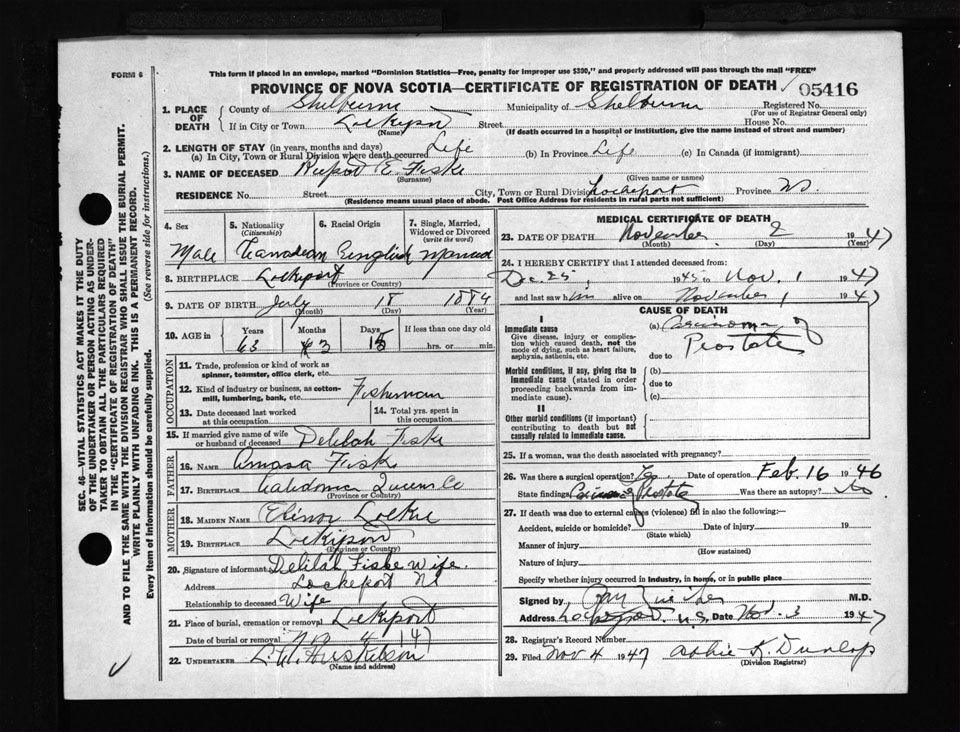 FORM 6
This form if placed in an envelope, marked "Dominion Statistics—Free, penalty for improper use $300," and properly addressed will pass through the mail "FREE"
PROVINCE OF NOVA SCOTIA—CERTIFICATE OF REGISTRATION OF DEATH / 05416
1. PLACE OF DEATH County of Shelburne Municipality of Shelburne Registered No.
(For use of Registrar General only)
If in City or Town Lockeport Street House No.
(Name) (If death occurred in a hospital or institution, give the name instead of street and number)
2. LENGTH OF STAY (in years, months and days)
(a) In City, Town or Rural Division where death occurred Life (b) In Province Life (c) In Canada (if immigrant)
3. NAME OF DECEASED Rupert E. Fiske
(Surname) (Given name or names)
RESIDENCE No. Street City, Town or Rural Division Lockeport Province NS.
(Residence means usual place of abode. Post Office Address for residents in rural parts not sufficient)
4. Sex 5. Nationality (Citizenship) 6. Racial Origin 7. Single, Married, Widowed or Divorced (write the word)
Male Canadian English Married
8. BIRTHPLACE Lockeport
(Province or Country)
9. DATE OF BIRTH July 18 1884
(Month) (Day) (Year)
10. AGE in Years Months Days If less than one day old
63 3 15 hrs. or min.
OCCUPATION
11. Trade, profession or kind of work as spinner, teamster, office clerk, etc.
12. Kind of industry or business, as cotton-mill, lumbering, bank, etc. Fisherman
13. Date deceased last worked at this occupation 14. Total yrs. spent in this occupation
15. If married give name of wife or husband of deceased Delilah Fiske
FATHER
16. NAME Amasa Fisk
17. BIRTHPLACE Caledonia Queens Co
(Province or Country)
MOTHER
18. MAIDEN NAME Elinor Locke
19. BIRTHPLACE Lockeport
(Province or Country)
20. Signature of informant Delilah Fiske Wife.
Address Lockeport NS
Relationship to deceased Wife
21. Place of burial, cremation or removal Lockeport
Date of burial or removal Nov 4 1947
22. UNDERTAKER L. W. Huskilson
(Name and address)
MEDICAL CERTIFICATE OF DEATH
23. DATE OF DEATH November 2 1947
(Month) (Day) (Year)
24. I HEREBY CERTIFY that I attended deceased from:
Dec. 25, 1945 to Nov. 1 1947
and last saw him alive on November 1 1947
CAUSE OF DEATH
I
Immediate cause (a) Carcinoma of
Give disease, injury or complication which caused death, not the mode of dying, such as heart failure, asphyxia, asthenia, etc. due to Prostate
Morbid conditions, if any, giving rise to immediate cause (stated in order proceeding backwards from immediate cause). (b)
due to
(c)
II
Other morbid conditions (if important) contributing to death but not causally related to immediate cause.
25. If a woman, was the death associated with pregnancy?
26. Was there a surgical operation? Yes. Date of operation Feb. 16 1946
State findings Carcinoma of Prostate Was there an autopsy? No
27. If death was due to external causes (violence) fill in also the following:—
Accident, suicide or homicide? Date of injury 19
(State which)
Manner of injury
(How sustained)
Nature of injury
Specify whether injury occurred in industry, in home, or in public place
Signed by M.D.
Address Lockeport N.S. Date Nov. 3 1947
28. Registrar's Record Number
29. Filed Nov 4 1947 Abbie K. Dunlop
(Division Registrar)
SEC. 46—VITAL STATISTICS ACT MAKES IT THE DUTY
OF THE UNDERTAKER OR PERSON ACTING AS UNDER-
TAKER TO OBTAIN ALL THE PARTICULARS REQUIRED
IN THE "CERTIFICATE OF REGISTRATION OF DEATH"
AND TO FILE THE SAME WITH THE DIVISION REGISTRAR WHO SHALL ISSUE THE BURIAL PERMIT.
WRITE PLAINLY WITH UNFADING INK. THIS IS A PERMANENT RECORD.
Every item of information should be carefully supplied. (See reverse side for instructions.)